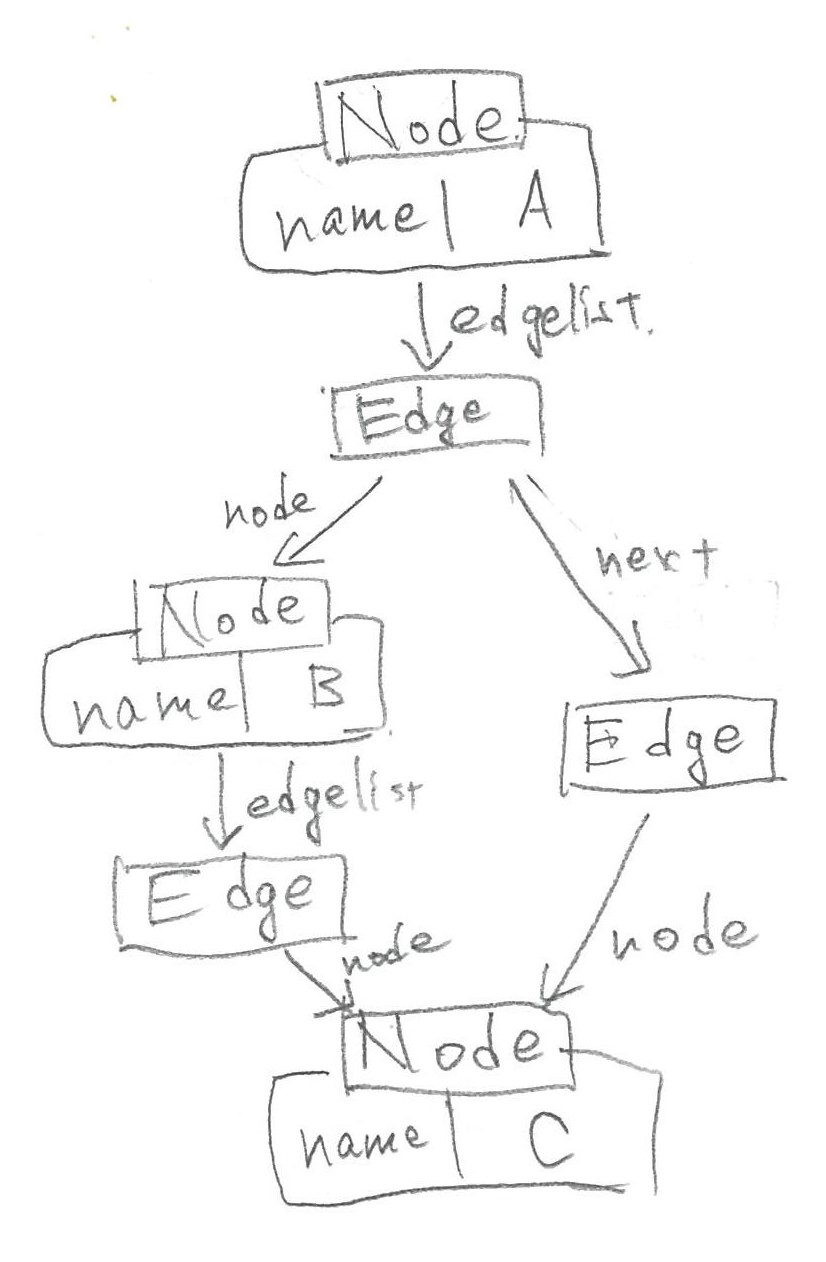 Node
name A
edgelist.
Edge
node
next
Node
name B
Edge
edgelist
Edge
node
node
Node
name C